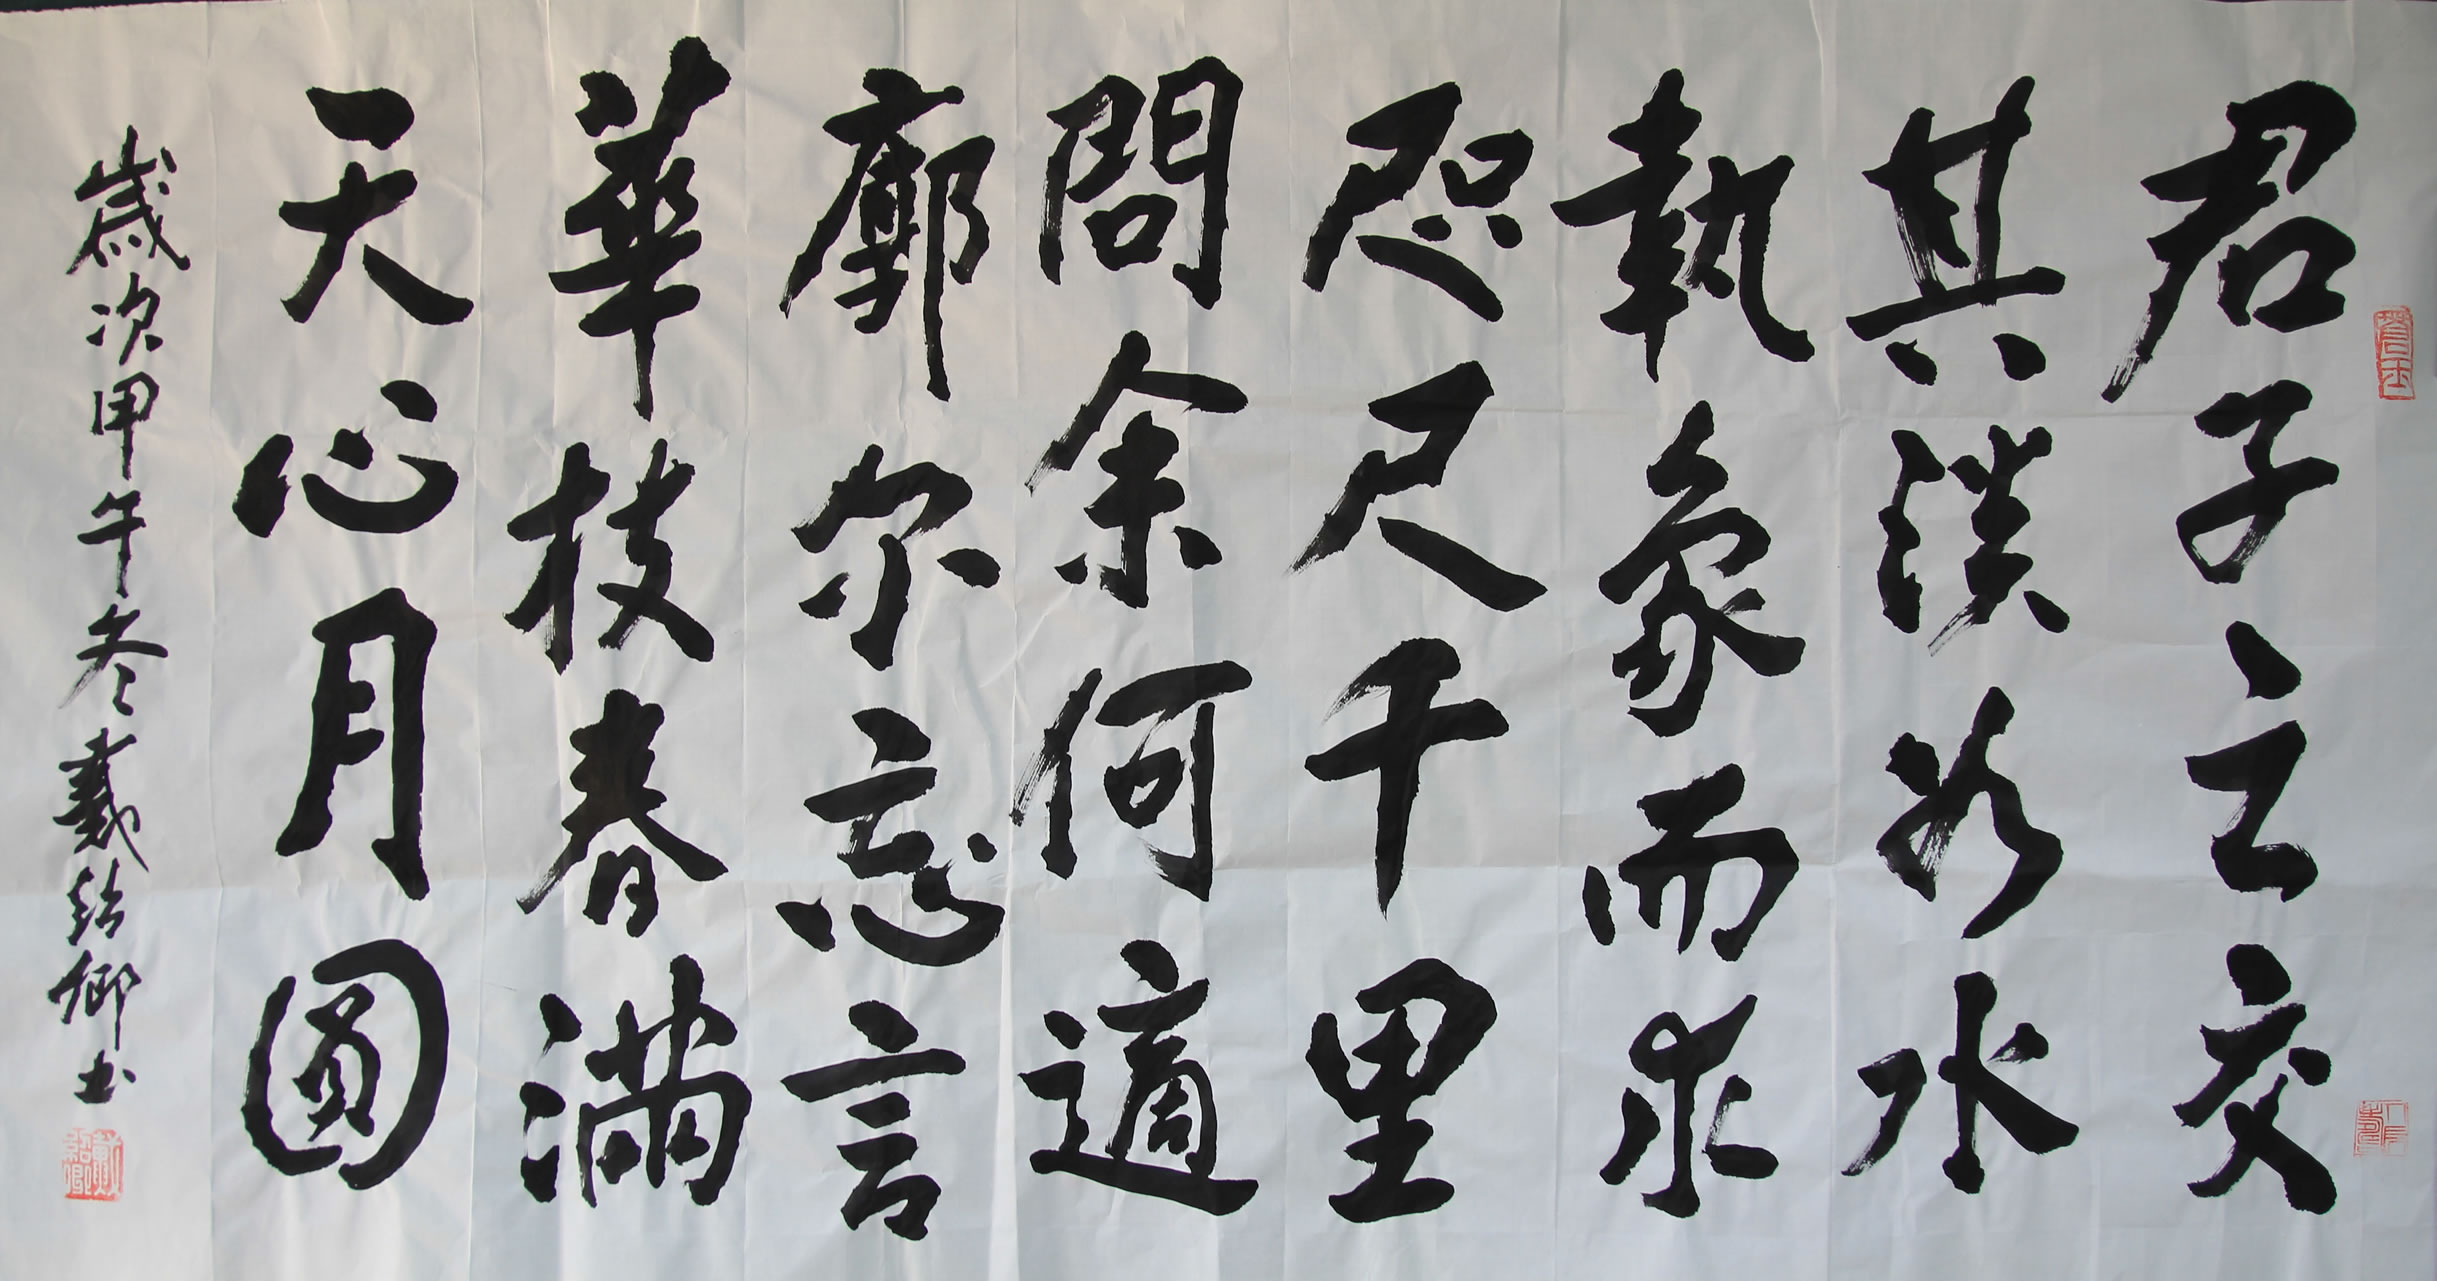 君子之交
其淡如水
執象而求
咫尺千里
問余何適
廓尔忘言
華枝春滿
天心月圓
歲次甲午冬戴紹卿书
戴紹卿